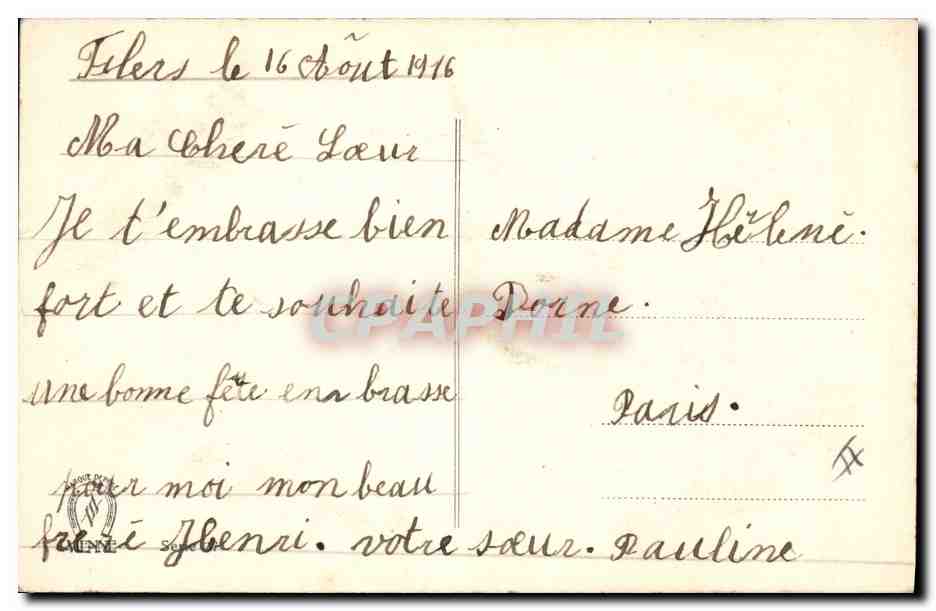 Flers le 16 Aôut 1916
Ma Cheré Sœur
Je t'embrasse bien
fort et te souhaite
une bonne fête enbrasse
pour moi mon beau
freré Henri. votre sœur. Pauline
Madame Hêlené.
Dorne.
Paris.
CPAPHIL
VIENNE